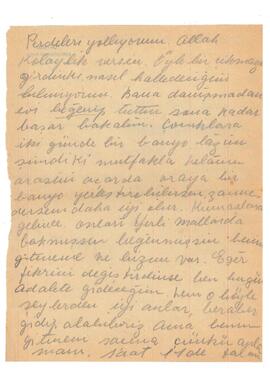 Perdeleri yolluyorum. Allah
kolaylık versin. Öyle bir çıkmaza
girdin ki, nasıl halledeceğini
bilmiyorum. Bana danışmadan
evi beğenip tuttun sona kadar
başar bakalım. Çocuklara
iki günde bir banyo lâzım
şimdiki mutfakla helânın
arasını açarda oraya bir
banyo yerleştirebilirsen,
dersem daha iyi olur.
gelince, onları Yerli Mallarda
bakmışsın beğenmişsin benim
gitmeme ne lüzum var. Eğer
fikrini değiştirdinse ben bugün
Adalete gideceğim, hem o böyle
şeylerden iyi anlar, beraber
gidip alabiliriz ama benim
gitmem
mam. Saat 11 de